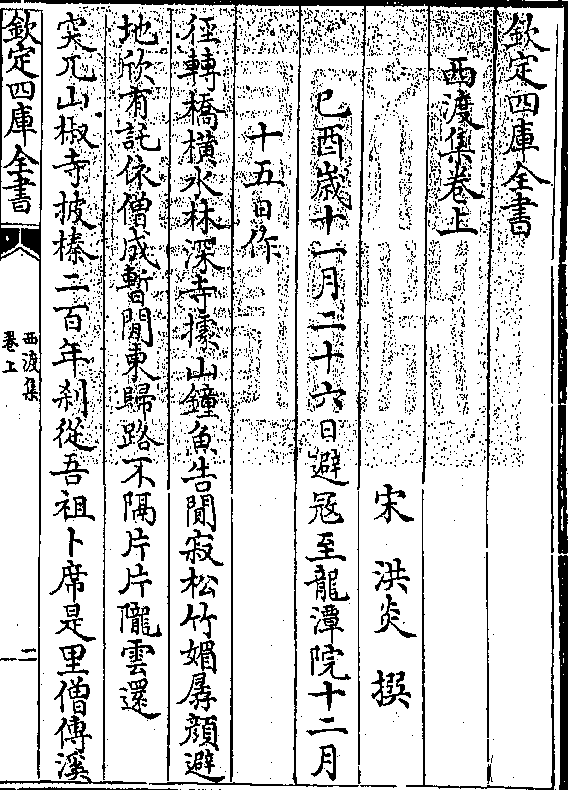 欽定四庫全書
西渡集卷上
宋 洪炎 撰
已酉歲十一月二十六日避冦至龍潭院十二月
十五日作
徑轉橋横水林深寺據山鐘魚告閴寂松竹媚孱顔避
地欣有託依僧成暫閒東歸路不隔片片隴雲還
突兀山椒寺披榛二百年刹從吾祖卜席是里僧傳溪
欽定四庫全書
西渡集
卷上
二